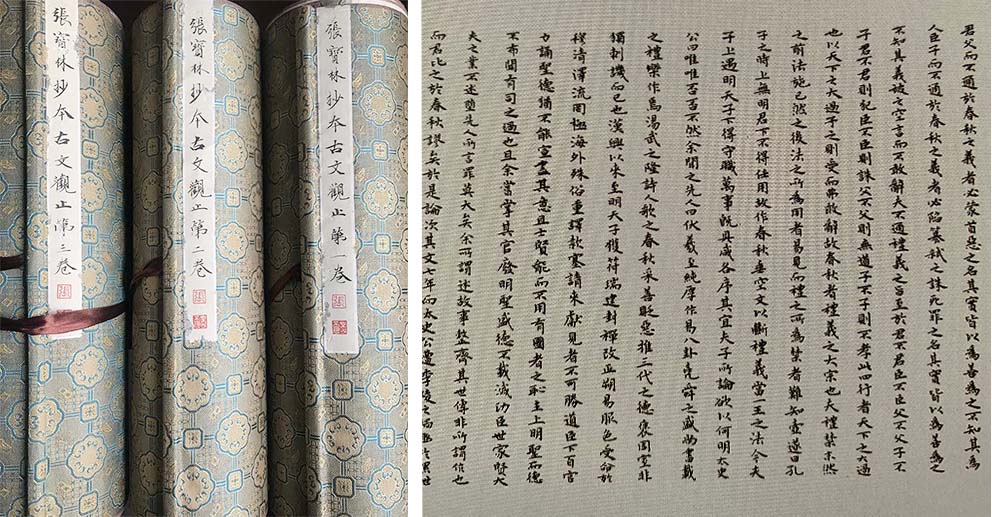 張寶林抄本古文觀止第三卷
張寶林抄本古文觀止第二卷
張寶林抄本古文觀止第一卷
君父而不通於春秋之義者必蒙首惡之名其實皆以為善為之不知其為
人臣子而不通於春秋之義者必陷篡弒之誅死罪之名其實皆以為善為之
不知其義被之空言而不敢辭夫不通禮義之旨至於君不君臣不臣父不父子不
子君不君則犯臣不臣則誅父不父則無道子不子則不孝此四行者天下之大過
也以天下之大過予之則受而弗敢辭故春秋者禮義之大宗也夫禮禁未然
之前法施已然之後法之所為用者易見而禮之所為禁者難知壺遂曰孔
子之時上無明君下不得任用故作春秋垂空文以斷禮義當王之法今夫
子上遇明天子下得守職萬事既具咸各序其宜夫子所論欲以何明太史
公曰唯唯否否不然余聞之先人曰伏羲至純厚作易八卦堯舜之盛尚書載
之禮樂作焉湯武之隆詩人歌之春秋采善貶惡推三代之德褒周室非
獨刺譏而已也漢興以來至明天子獲符瑞建封禪改正朔易服色受命於
穆清澤流罔極海外殊俗重譯款塞請來獻見者不可勝道臣下百官
力誦聖德猶不能宣盡其意且士賢能而不用有國者之恥主上明聖而德
不布聞有司之過也且余嘗掌其官廢明聖盛德不載滅功臣世家賢大
夫之業不述墮先人所言罪莫大矣余所謂述故事整齊其世傳非所謂作也
而君比之於春秋謬矣於是論次其文七年而太史公遭李陵之禍幽於